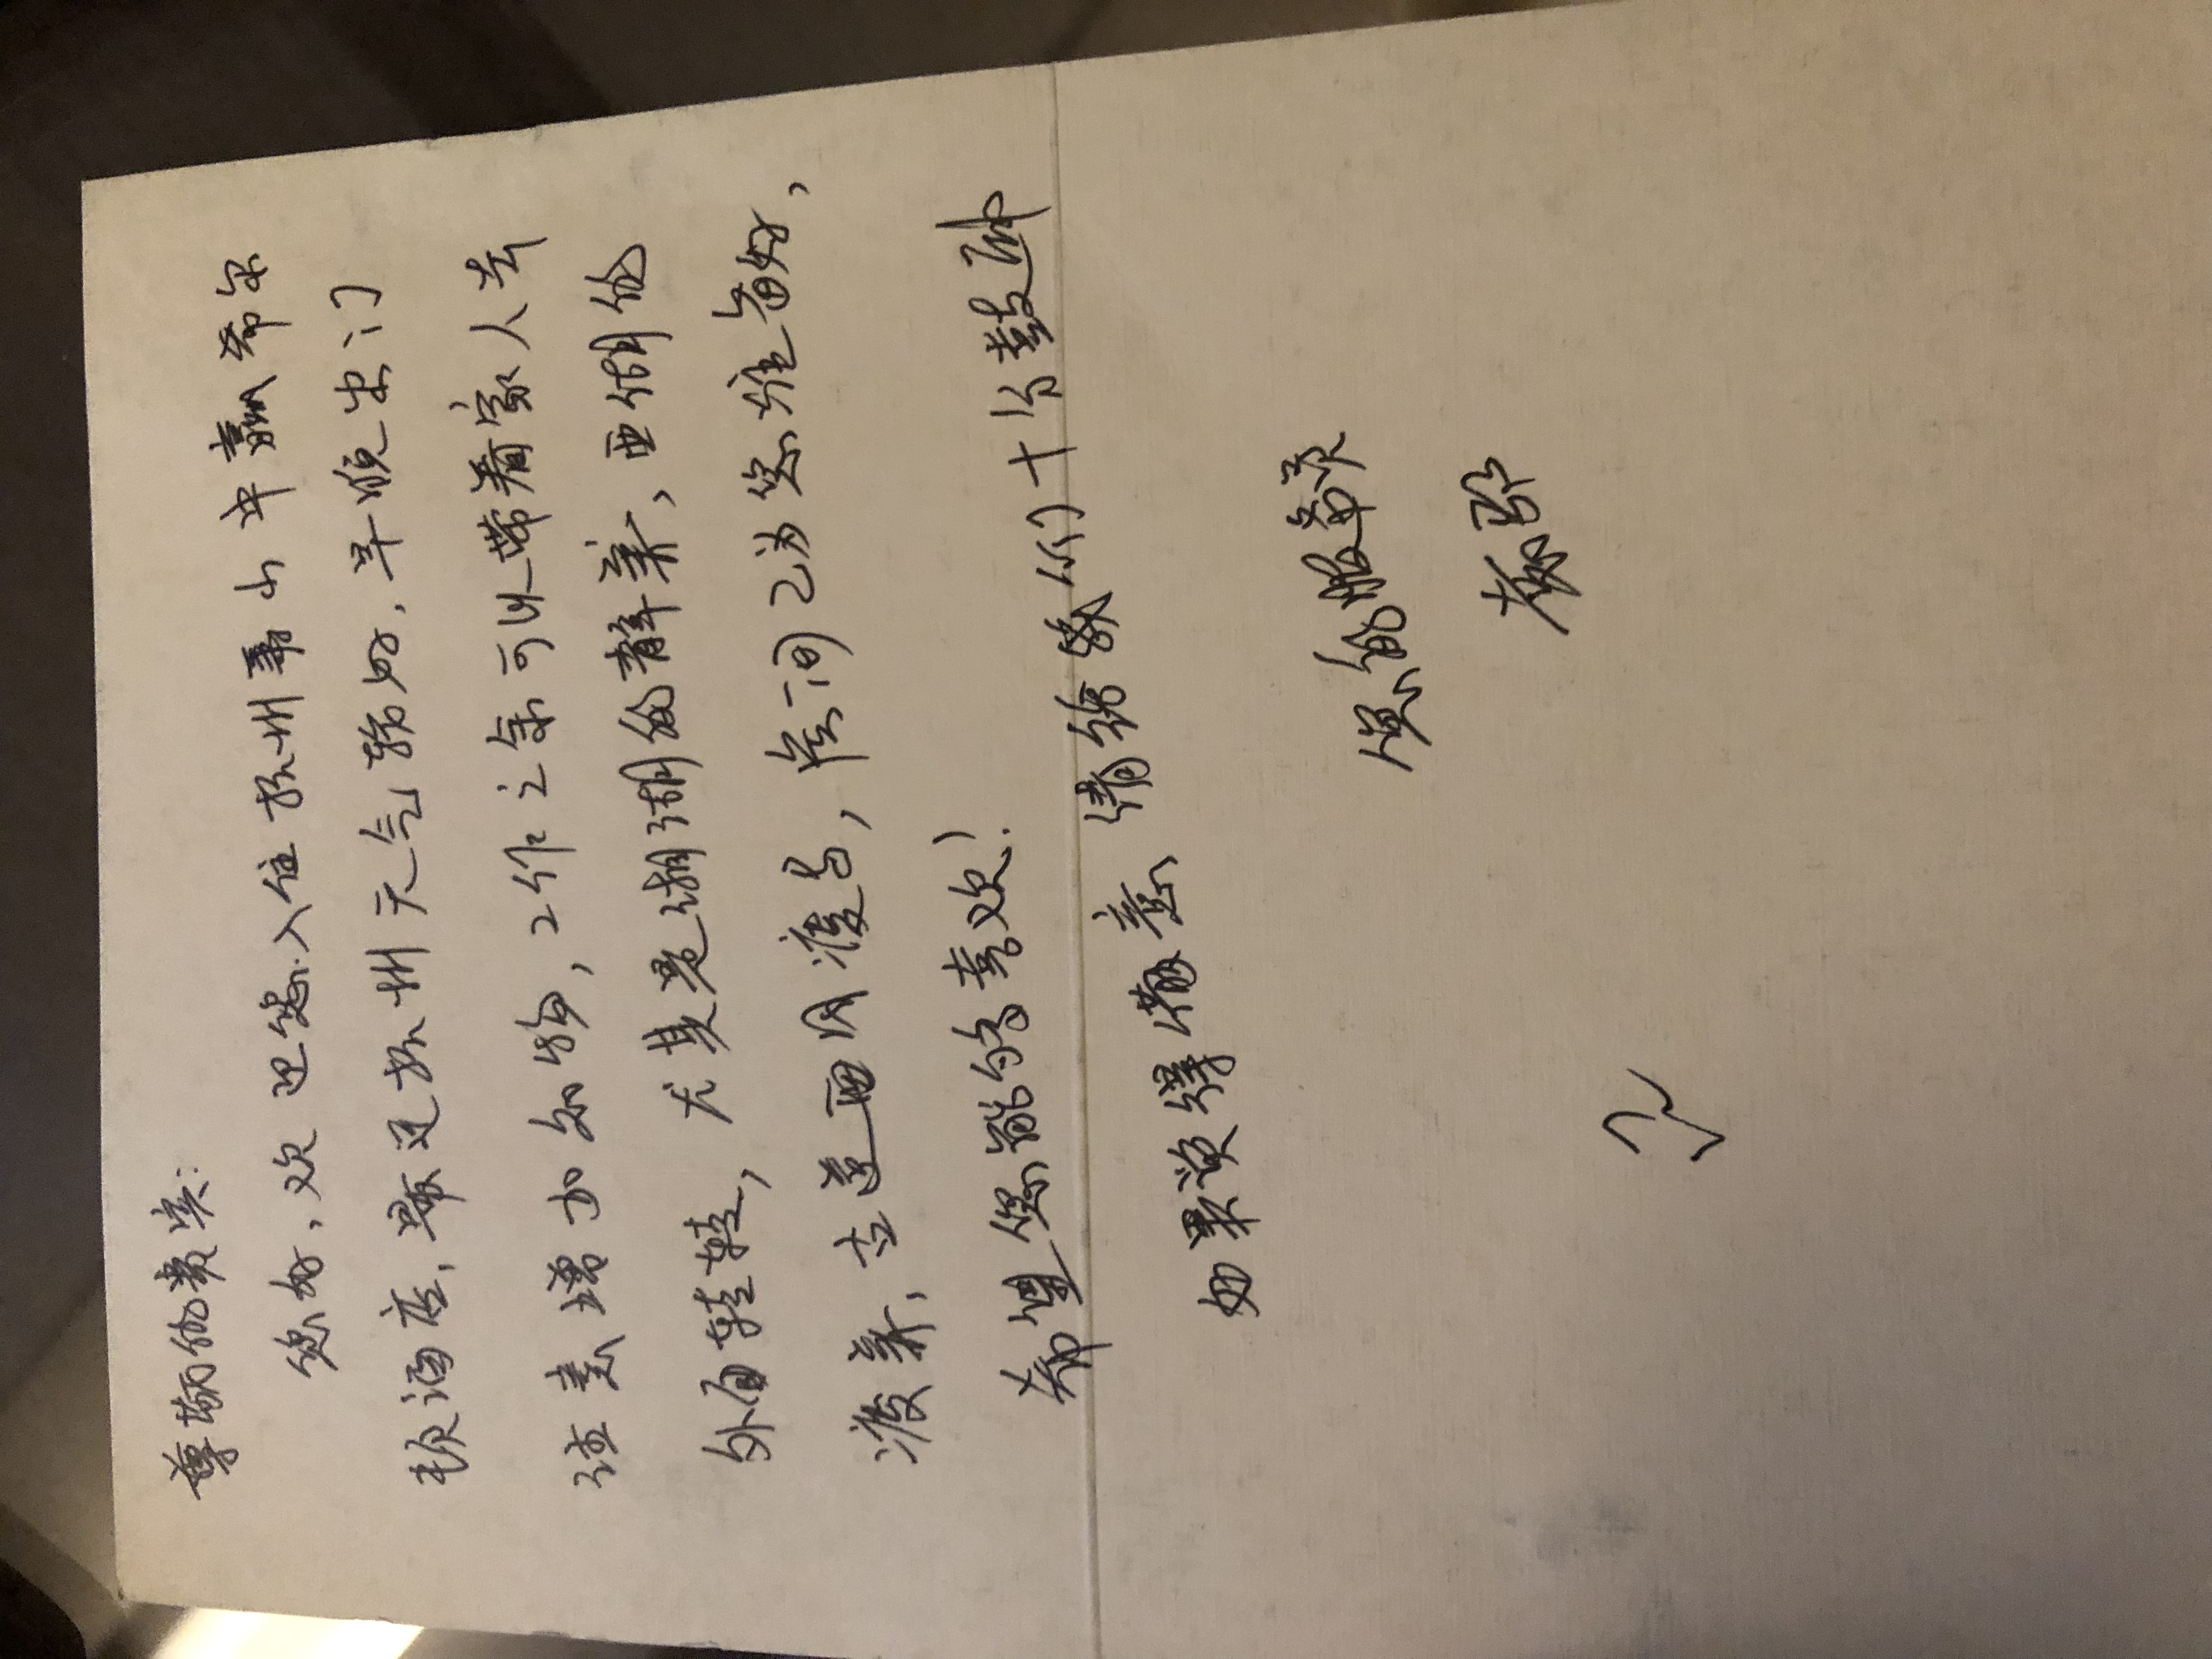 尊敬的贵宾:
您好,欢迎您入住杭州萧山中赢希尔
顿酒店,最近杭州天气转好,早晚出门
注意增加衣物,工作之余可以带着家人去
外面转转,尤其是湘湖的静美,西湖的
凄美,古道西风瘦马,房间已为您准备好,
希望您能够喜欢!
如果觉得满意 请给我们十分鼓励
您的服务员